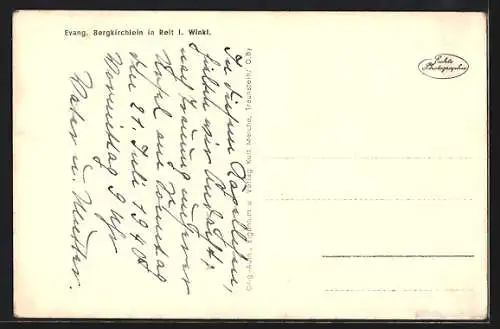 Evang. Bergkirchlein in Reit i. Winkl.
In diesem Kapellchen,
hielten wir Andacht,
nach Trauung unserer
am Sonntag
den 21. Juli 1940
Vormittag 9 Uhr
Vater u. Mutter.
Orig.-Aufn. Eigentum u. Verlag Kurt Meiche, Traunstein/O.By
Echte
Photographie